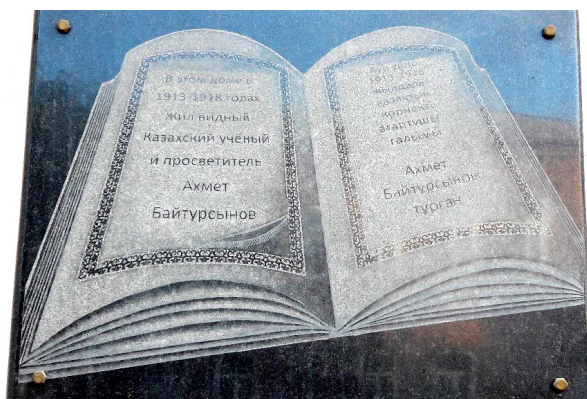 В этом доме в
1913-1918 годах
жил видный
Казахский учёный
и просветитель
Ахмет
Байтурсынов
1913-1918
жылдары
қазақтың
көрнекті
ағартушы
ғалымы
Ахмет
Байтурсынов
турган